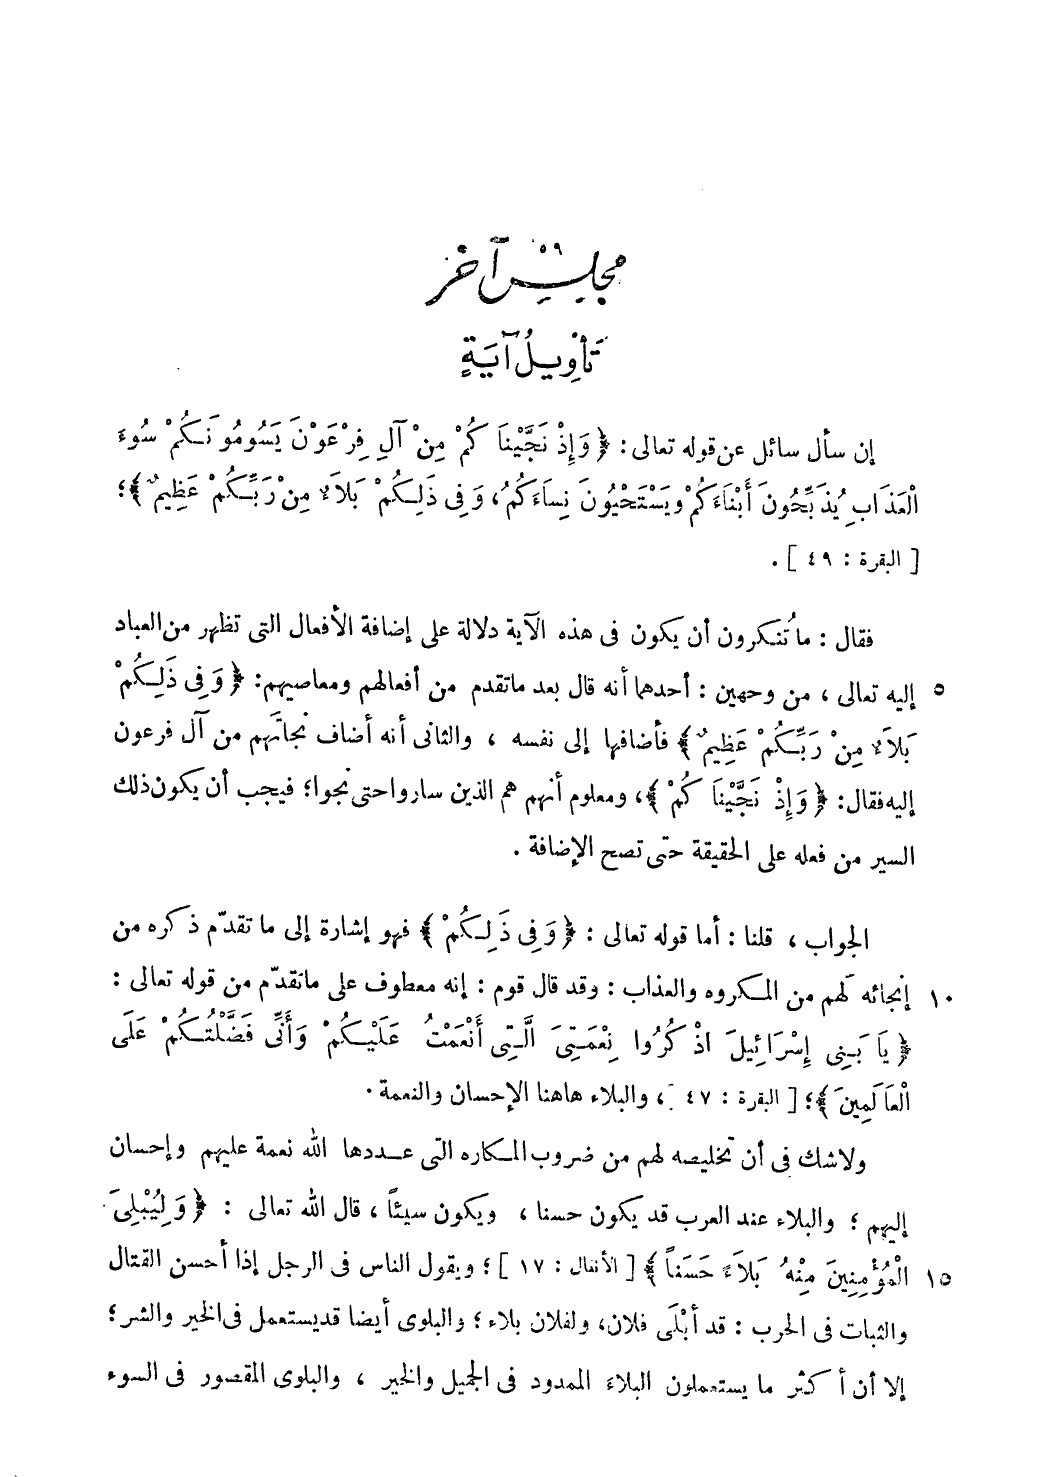 ٥٩
مجلس آخر
تَأْوِيلُ آيَةٍ
إن سأل سائل عن قوله تعالى: ﴿وَإِذْ نَجَّيْنَا كُمْ مِنْ آلِ فِرْعَوْنَ يَسُومُونَكُمْ سُوءَ
الْعَذَابِ يُذَبِّحُونَ أَبْنَاءَكُمْ ويَسْتَحْيُونَ نِسَاءَكُمْ، وَفِى ذَلِكُمْ بَلَاءٌ مِنْ رَبِّكُمْ عَظِيمٌ﴾؛
[ البقرة : ٤٩ ] .
فقال : ما تُنكرون أن يكون فى هذه الآية دلالة على إضافة الأفعال التى تظهر من العباد
٥ إليه تعالى ، من وجهين : أحدهما أنه قال بعد ماتقدم من أفعالهم ومعاصيهم: ﴿وَفِى ذَلِكُمْ
بَلَاءٌ مِنْ رَبِّكُمْ عَظِيمٌ﴾ فأضافها إلى نفسه ، والثانى أنه أضاف نجاتَهم من آل فرعون
إليه فقال: ﴿وَإِذْ نَجَّيْنَا كُمْ﴾، ومعلوم أنهم هم الذين ساروا حتى نجوا؛ فيجب أن يكون ذلك
السير من فعله على الحقيقة حتى تصح الإضافة .
الجواب ، قلنا : أما قوله تعالى : ﴿وَفِى ذَلِكُمْ﴾ فهو إشارة إلى ما تقدّم ذكره من
١٠ إنجائه لهم من المكروه والعذاب : وقد قال قوم : إنه معطوف على ماتقدّم من قوله تعالى :
﴿يَا بَنِى إِسْرَائِيلَ اذْ كُرُوا نِعْمَتِىَ الَّتِى أَنْعَمْتُ عَلَيْكُمْ وَأَنِّى فَضَّلْتُكُمْ عَلَى
الْعَالَمِينَ﴾؛ [ البقرة : ٤٧ ]، والبلاء هاهنا الإحسان والنعمة.
ولاشك فى أن تخليصه لهم من ضروب المكاره التى عددها الله نعمة عليهم وإحسان
إليهم ؛ والبلاء عند العرب قد يكون حسنا ، ويكون سيئاً ، قال الله تعالى : ﴿وَلِيُبْلِىَ
١٥ الْمُؤْمِنِينَ مِنْهُ بَلَاءً حَسَناً﴾ [ الأنفال : ١٧ ] ؛ ويقول الناس فى الرجل إذا أحسن القتال
والثبات فى الحرب : قد أَبْلَى فلان، ولفلان بلاء ؛ والبلوى أيضا قديستعمل فى الخير والشر ؛
إلا أن أكثر ما يستعملون البلاءَ الممدود فى الجميل والخير ، والبلوى المقصور فى السوء